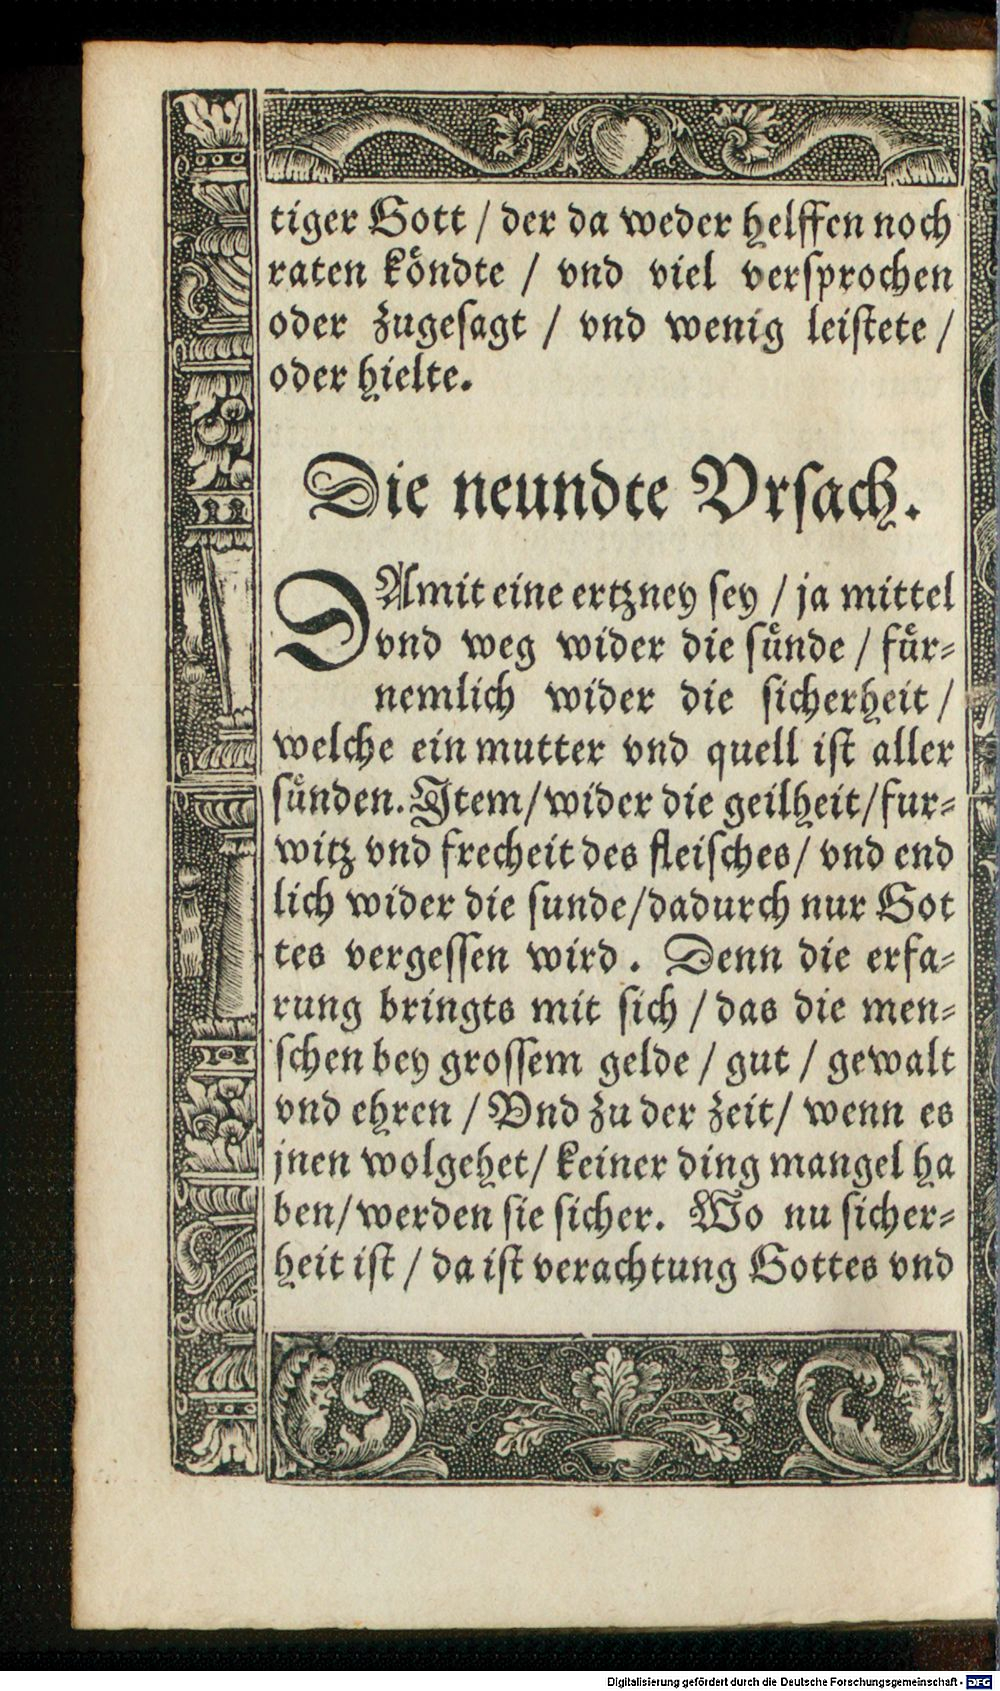 tiger Gott / der da weder helffen noch
raten köndte / vnd viel versprochen
oder zugesagt / vnd wenig leistete /
oder hielte.
Die neundte Vrsach.
DAmit eine ertzney sey / ja mittel
vnd weg wider die sünde / für-
nemlich wider die sicherheit /
welche ein mutter vnd quell ist aller
sünden. Item/ wider die geilheit/ fur-
witz vnd frecheit des fleisches/ vnd end
lich wider die sunde/ dadurch nur Got
tes vergessen wird. Denn die erfa-
rung bringts mit sich / das die men-
schen bey grossem gelde / gut / gewalt
vnd ehren / Vnd zu der zeit/ wenn es
jnen wolgehet/ keiner ding mangel ha
ben/ werden sie sicher. Wo nu sicher-
heit ist / da ist verachtung Gottes vnd
Digitalisierung gefördert durch die Deutsche Forschungsgemeinschaft - DFG